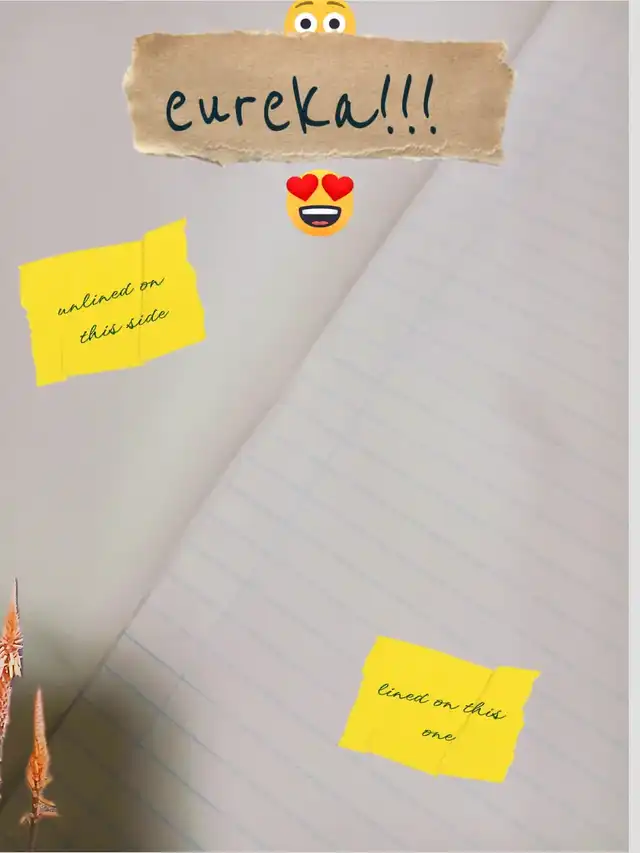 eureka!!!
unlined on
this side
lined on this
one